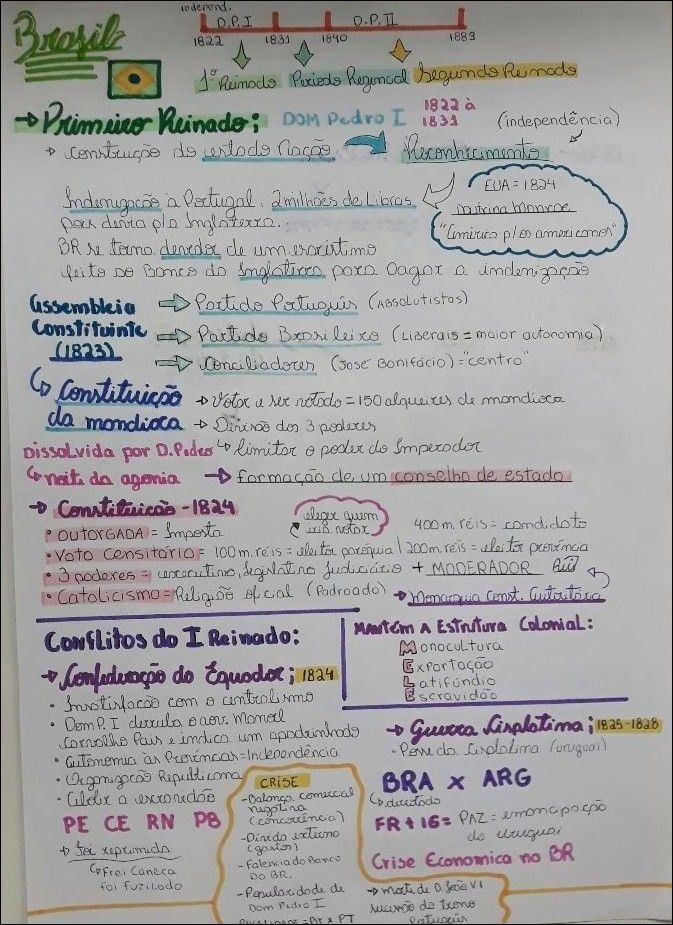 Brasil
independ.
D.P. I D.P. II
1822 1831 1840 1889
1º Reinado Período Regencial Segundo Reinado
→ Primeiro Reinado; DOM Pedro I 1822 à 1831 (independência)
→ construção do estado Nação Reconhecimento
EUA = 1824
Doutrina Monroe
"América p/ os americanos"
Indenização à Portugal. 2 milhões de Libras
p/a Inglaterra.
BR se torna devedor de um
feito ao Banco da Inglaterra para Pagar a indenização
Assembleia Constituinte (1823)
⇒ Partido Português (ABSOLUTISTAS)
⇒ Partido Brasileiro (LIBERAIS = maior autonomia)
⇒ Conciliadores (José Bonifácio) = "centro"
Constituição da mandioca
→ Votar e ser votado = 150 alqueires de mandioca
→ Divisão dos 3 poderes
Dissolvida por D. Pedro
↳ limitar o poder do Imperador
↳ noite da agonia → formação de um conselho de estado
→ Constituição - 1824
eleger quem irá votar
400 m. réis = candidato
• OUTORGADA = Imposta
• Voto censitário = 100 m. réis = eleitor paróquia | 200 m. réis = eleitor província
• 3 poderes = executivo, legislativo, judiciário + MODERADOR
• Catolicismo = Religião oficial (Padroado) → Monarquia Const. Autoritária
Conflitos do I Reinado:
→ Confederação do Equador; 1824
• Insatisfação com o centralismo
• Dom P. I derruba o gov. Manoel
Carvalho Pais e indica um apadrinhado
• Autonomia às Províncias = Independência
• Organização Republicana
• Abolir a escravidão
PE CE RN PB
→ foi reprimida
↳ Frei Caneca
foi fuzilado
MANTÉM A Estrutura Colonial:
Monocultura
Exportação
Latifúndio
Escravidão
→ Guerra Cisplatina; 1825-1828
- Posse da Cisplatina (Uruguai)
BRA X ARG
↳ derrotado
FR + IG = PAZ = emancipação
do Uruguai
Crise Economica no BR
CRISE
- Balança comercial
negativa
(concorrência)
- Dívida externa
(gastos)
- Falencia do Banco
DO BR.
- Popularidade de
Dom Pedro I
= BR X PT
→ Morte de D. João VI
sucessão do trono
Português